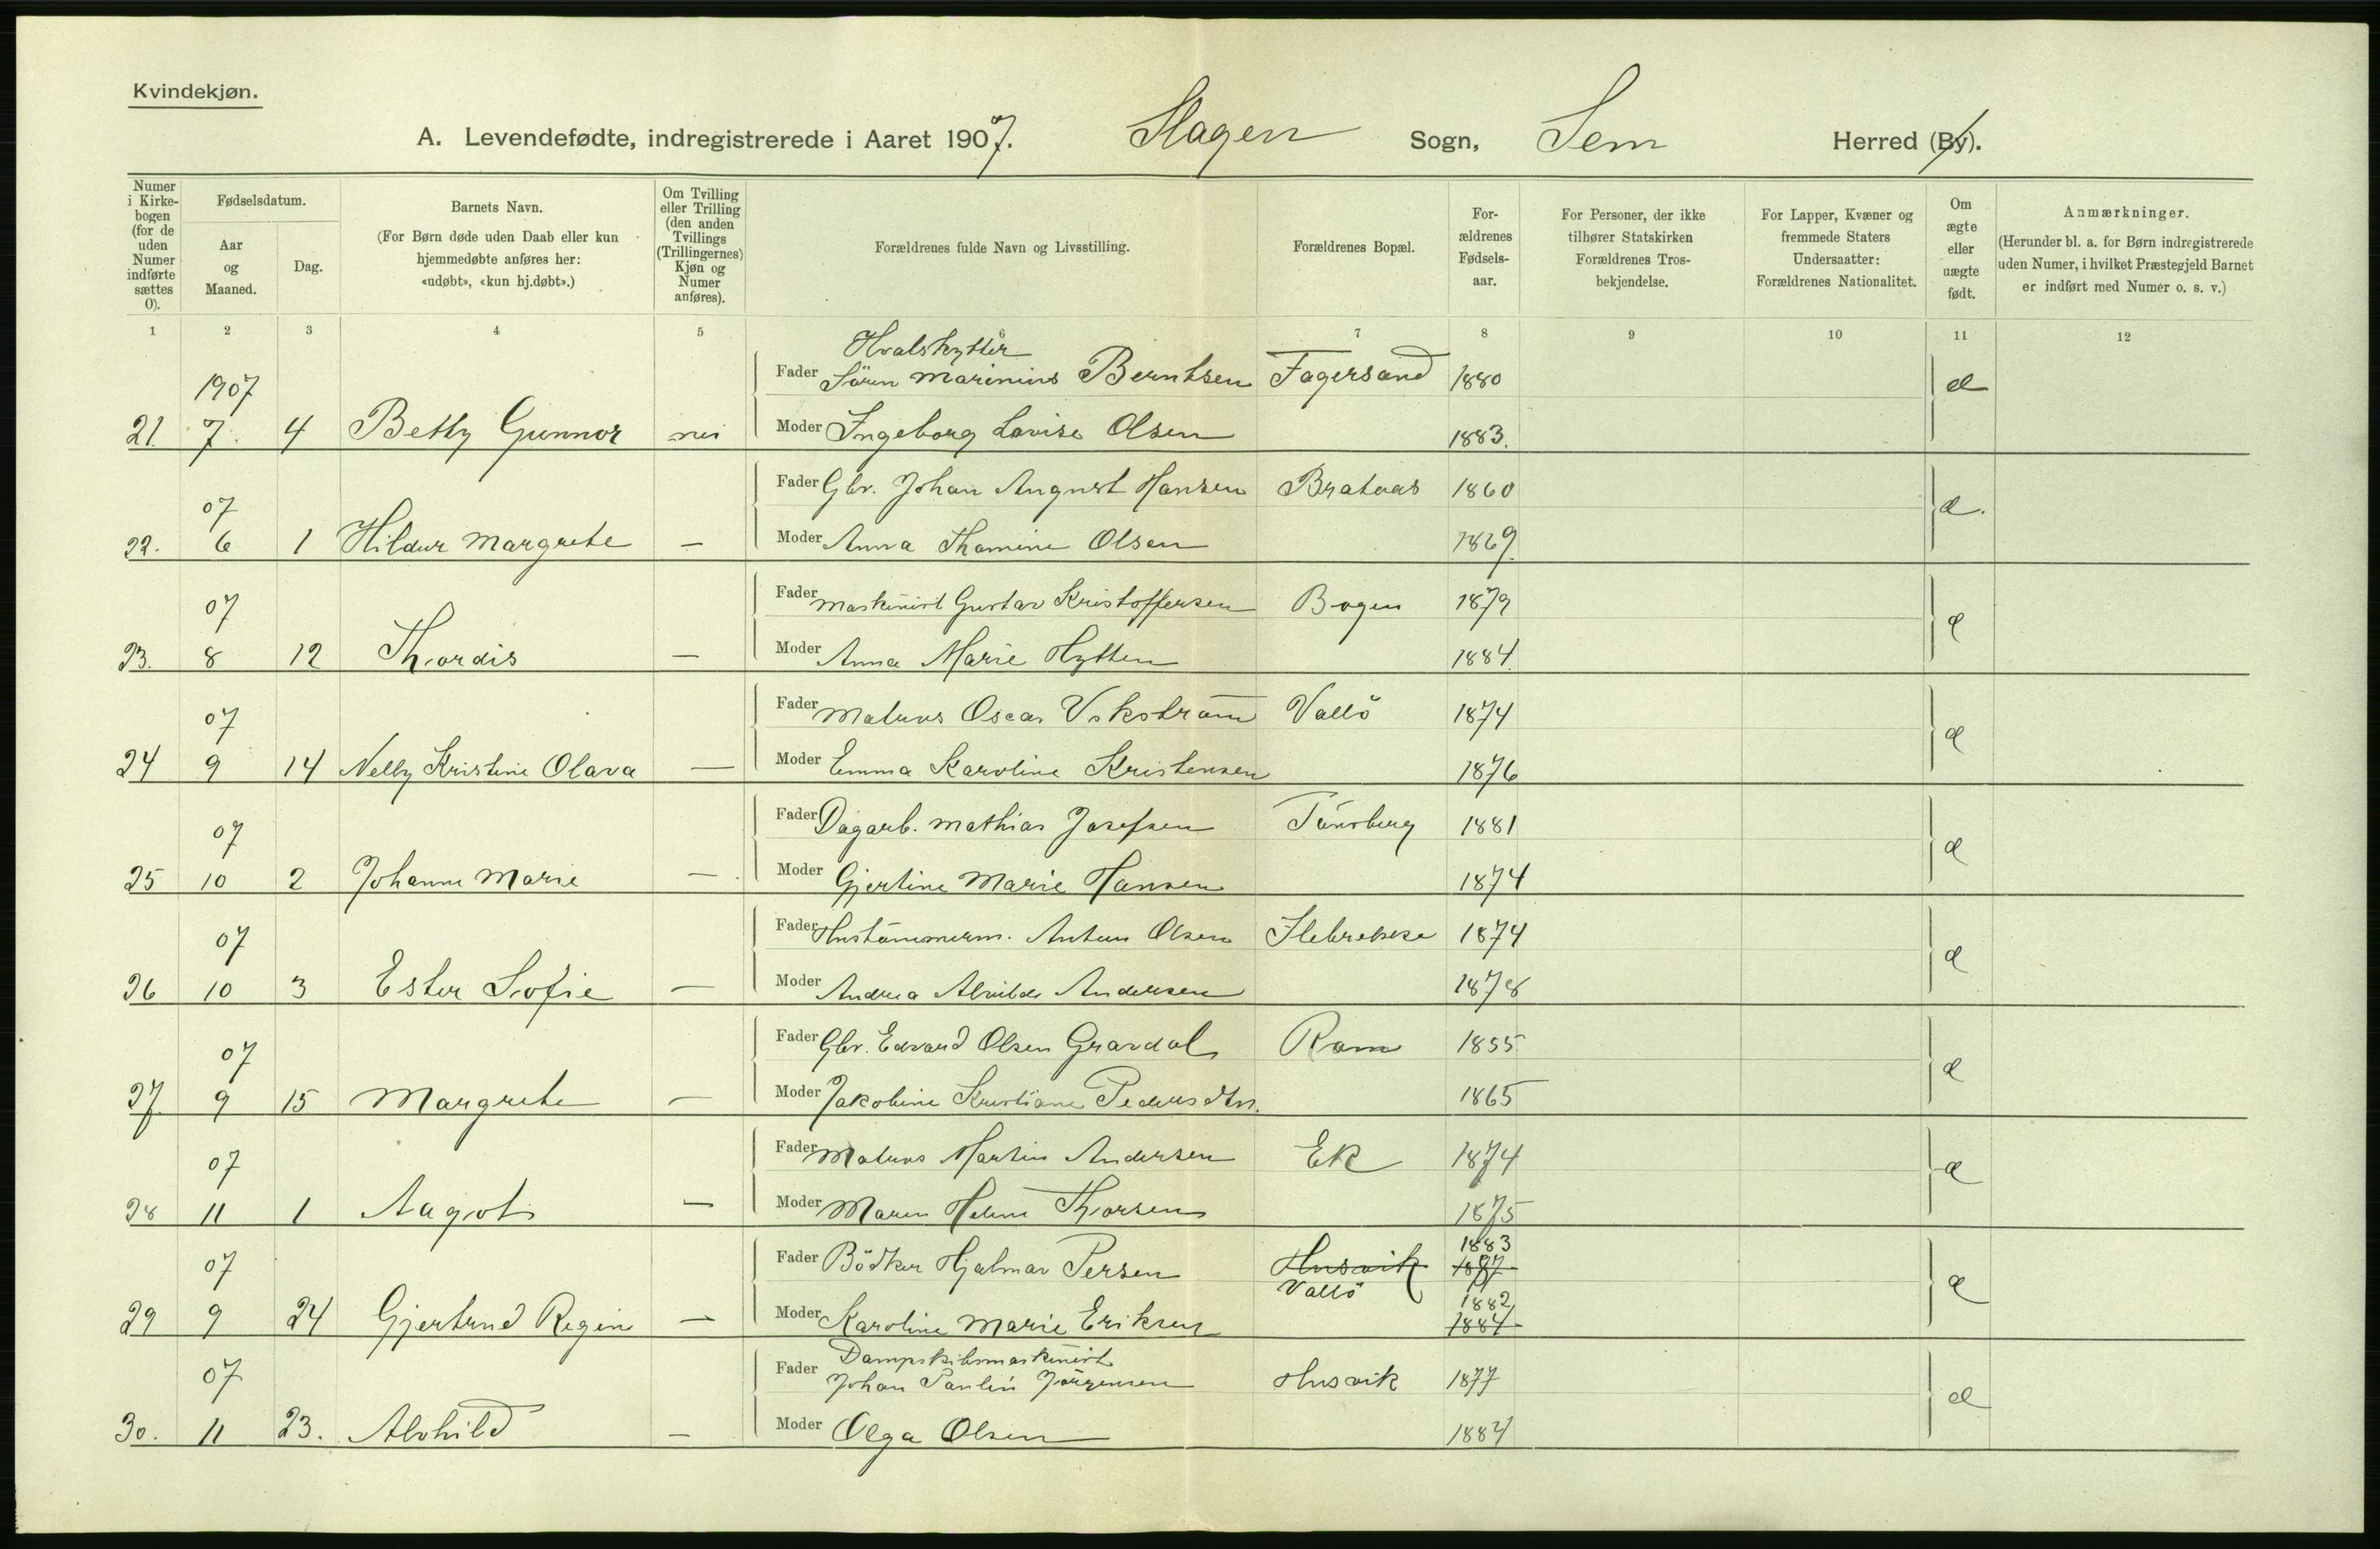 Kvindekjøn.
A. Levendefødte, indregistrerede i Aaret 1907. Slagen Sogn, Sem Herred (By).
Numer i Kirkebogen (for de uden Numer indførte sættes 0).
Fødselsdatum.
Aar og Maaned.
Dag.
Barnets Navn.
(For Børn døde uden Daab eller kun hjemmedøbte anføres her: «udøbt», «kun hj.døbt».)
Om Tvilling eller Trilling (den anden Tvillings (Trillingernes) Kjøn og Numer anføres).
Forældrenes fulde Navn og Livsstilling.
Forældrenes Bopæl.
Forældrenes Fødselsaar.
For Personer, der ikke tilhører Statskirken Forældrenes Trosbekjendelse.
For Lapper, Kvæner og fremmede Staters Undersaatter: Forældrenes Nationalitet.
Om ægte eller uægte født.
Anmærkninger.
(Herunder bl. a. for Børn indregistrerede uden Numer, i hvilket Præstegjeld Barnet er indført med Numer o. s. v.)
1 2 3 4 5 6 7 8 9 10 11 12
Hvalskytter
1907 Fader Sören Marinius Berntsen Fagersand 1880 æ
21. 7. 4 Betty Gunnor nei Moder Ingeborg Lovise Olsen 1883.
07 Fader Gbr. Johan August Hansen Brataas 1860 æ.
22. 6 1 Hildur Margrete — Moder Anna Thomine Olsen 1869.
07 Fader Maskinist Gustav Kristoffersen Bogen 1879 æ
23. 8 12 Thordis — Moder Anna Marie Hytten 1884.
07 Fader Matros Oscar Vallö 1874 æ
24 9 14 Nelly Kristine Olava — Moder Emma Karoline Kristensen 1876
07 Fader Dagarb. Mathias Josefsen Tönsberg 1881 æ
25 10 2 Johanne Marie — Moder Gjertine Marie Hansen 1874
07 Fader Hustömmerm. Anton Olsen Ilebrekke 1874 æ
26 10 3 Ester Sofie — Moder Andrea Alvilde Andersen 1878
07 Fader Gbr. Edvard Olsen Gravdal Rom 1855. æ
27. 9 15 Margrete — Moder Jakobine Kristiane Pedersdtr. 1865
07 Fader Matros Martin Andersen Ek 1874 æ
28 11 1 Aagot — Moder Maren Helene Thorsen 1875
1883
07 Fader Bödker Hjalmar Persen Husvik 1887 æ
Vallö
1882
29 9 24 Gjertrud Regine — Moder Karoline Marie Eriksen 1884
Dampskibsmaskinist
07 Fader Johan Paulin Jörgensen Husvik 1877 æ
30. 11 23. Alvhild — Moder Olga Olsen 1884